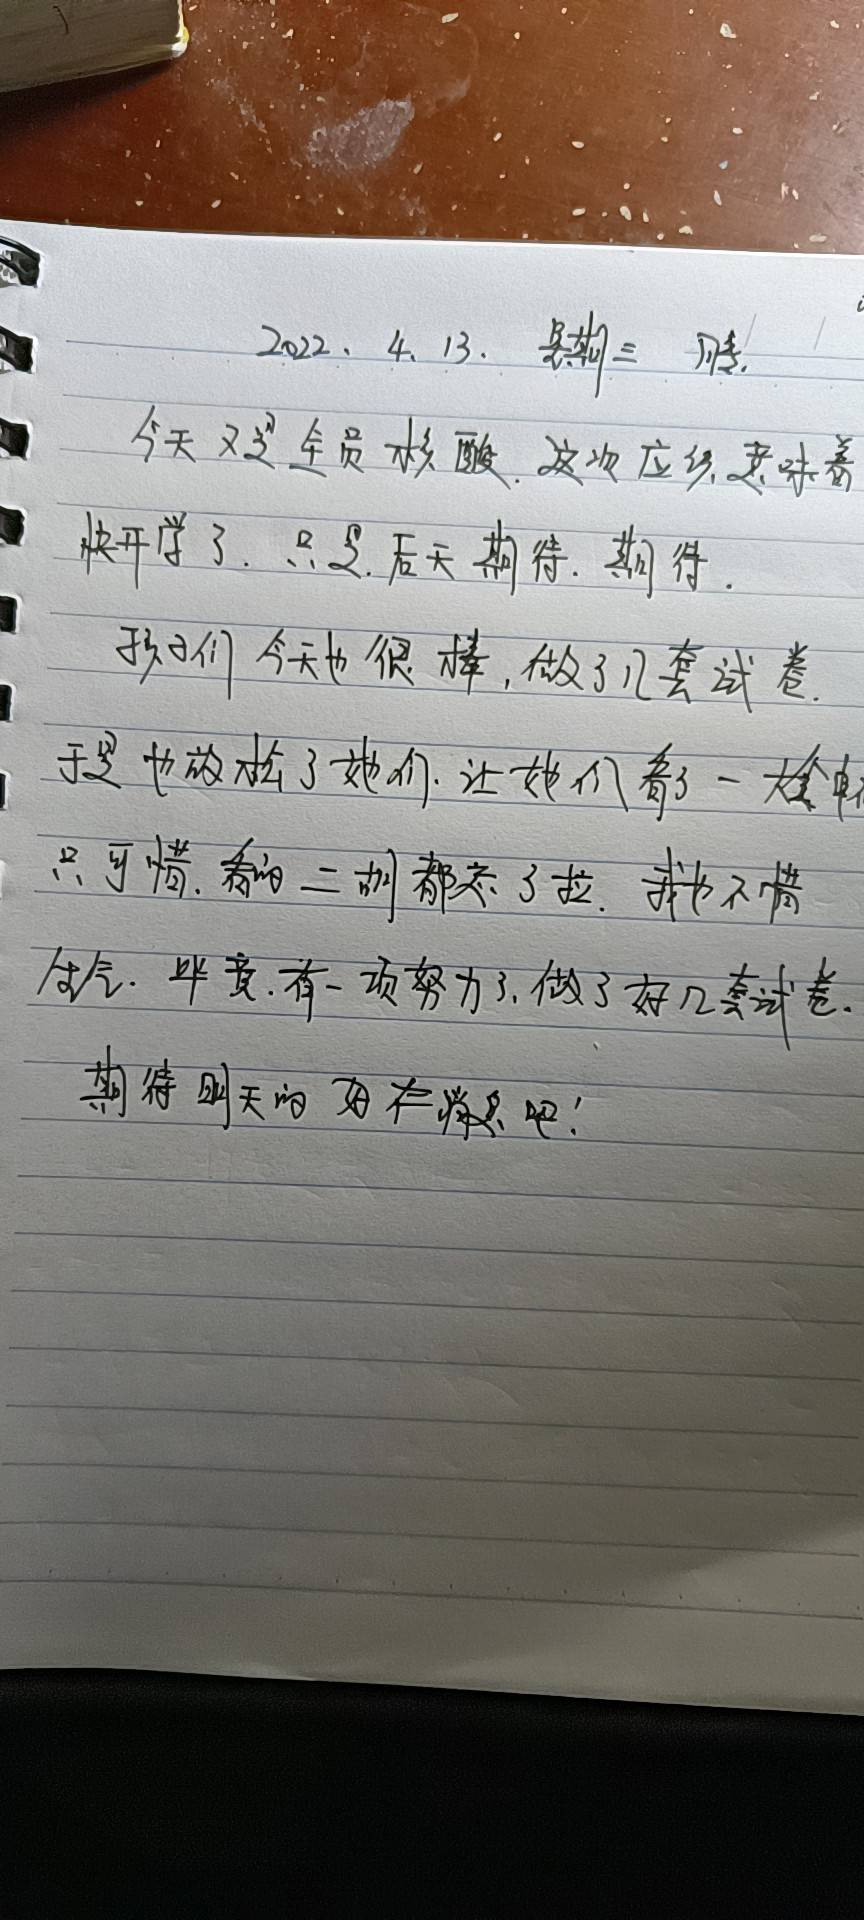 2022. 4. 13. 星期三 晴.
今天又是全员核酸. 这次应该意味着
快开学了. 只是. 后天期待. 期待.
孩子们今天也很棒, 做了几套试卷.
于是也放松了她们. 让她们看了一
只可惜. 看的二胡都忘了拉. 我也不惜
生气. 毕竟. 有一项努力了, 做了好几套试卷.
期待明天的 吧!